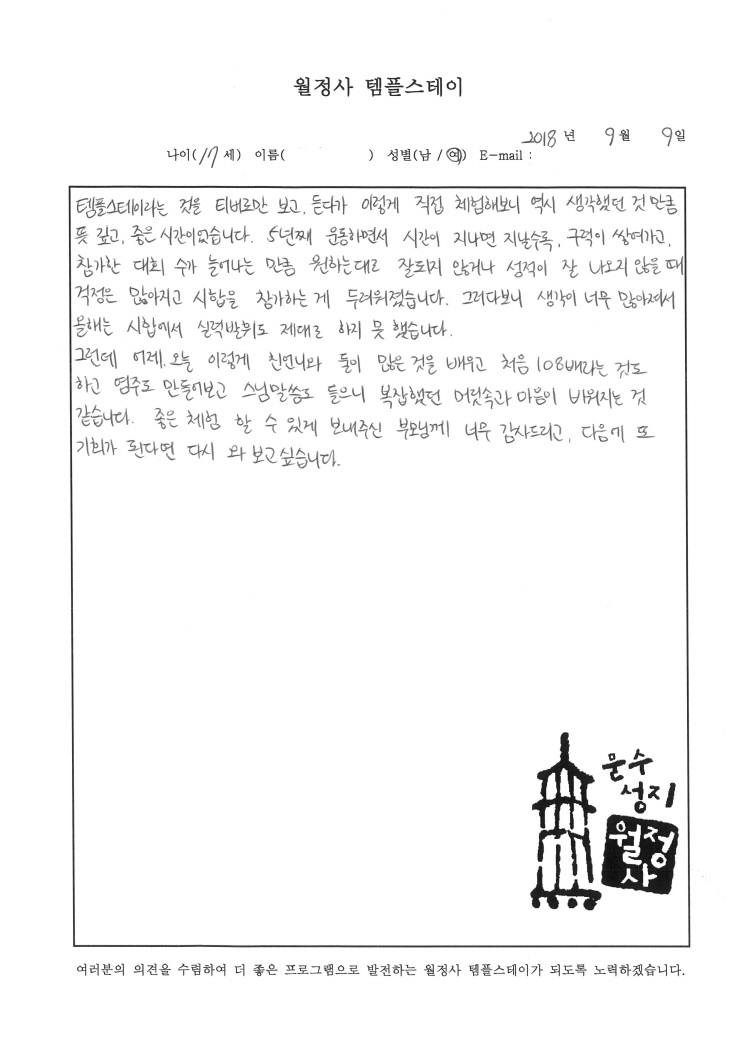 월정사 템플스테이
2018 년 9 월 9 일
나이( 17 세) 이름( ) 성별(남 / 여) E-mail :
템플스테이라는 것을 티비로만 보고, 듣다가 이렇게 직접 체험해보니 역시 생각했던 것 만큼
뜻 깊고, 좋은 시간이었습니다. 5년째 운동하면서 시간이 지나면 지날수록, 구력이 쌓여가고,
참가한 대회 수가 늘어나는 만큼 원하는대로 잘되지 않거나 성적이 잘 나오지 않을 때
걱정은 많아지고 시합을 참가하는 게 두려워졌습니다. 그러다보니 생각이 너무 많아져서
올해는 시합에서 실력발휘도 제대로 하지 못 했습니다.
그런데 어제, 오늘 이렇게 친언니와 둘이 많은 것을 배우고 처음 108배라는 것도
하고 염주도 만들어보고 스님말씀도 들으니 복잡했던 머릿속과 마음이 비워지는 것
같습니다. 좋은 체험 할 수 있게 보내주신 부모님께 너무 감사드리고, 다음에 또
기회가 된다면 다시 와 보고싶습니다.
문수
성지
월정
사
여러분의 의견을 수렴하여 더 좋은 프로그램으로 발전하는 월정사 템플스테이가 되도록 노력하겠습니다.